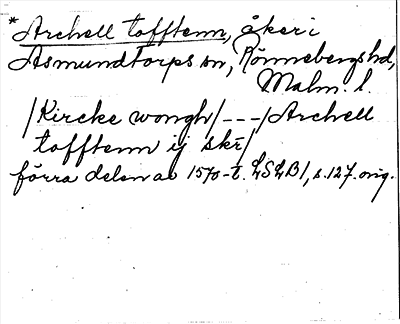 * Archell tofftenn, åker i
Asmundtorps sn, Rönnebergs hd,
Malm. l.
/Kircke wongh/---/Archell
tofftenn ij skr/
förra delen av 1570-t. LSLB1, s.127. orig.